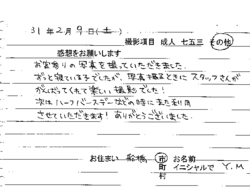 31年2月9日(土)
撮影項目 成人 七五三 その他
感想をお願いします
お宮参りの写真を撮っていただきました。
ずっと寝ているこでしたが、写真撮るときにスタッフさんが
がんばってくれて楽しい撮影でした!
次はハーフバースデーなどの時にまた利用
させていただきます! ありがとうございました。
お住まい 船橋 市 お名前
町 イニシャルで Y.M
村